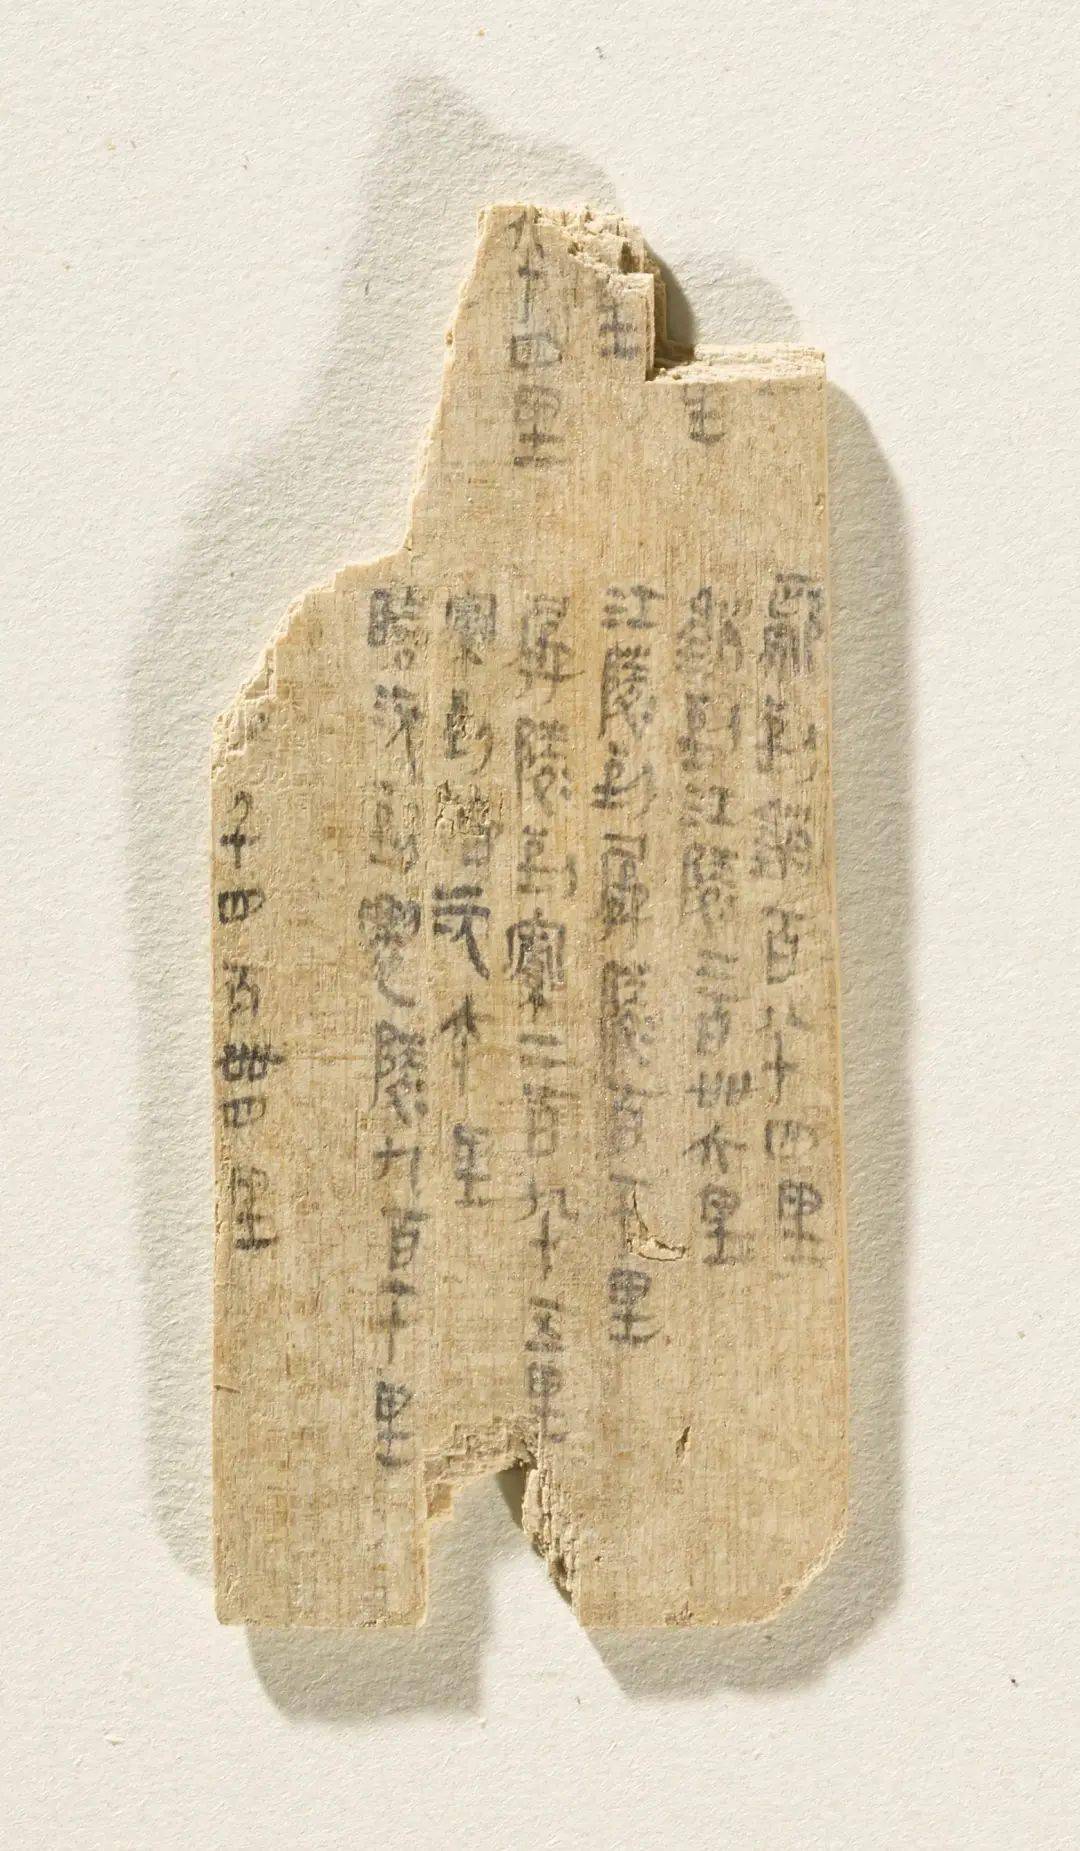 里
里
十四里
鄢到銷百八十四里
銷到江陵二百卌六里
江陵到孱陵百一十里
孱陵到索二百九十五里
索到臨沅六十里
臨沅到遷陵九百一十里
千四百卌四里